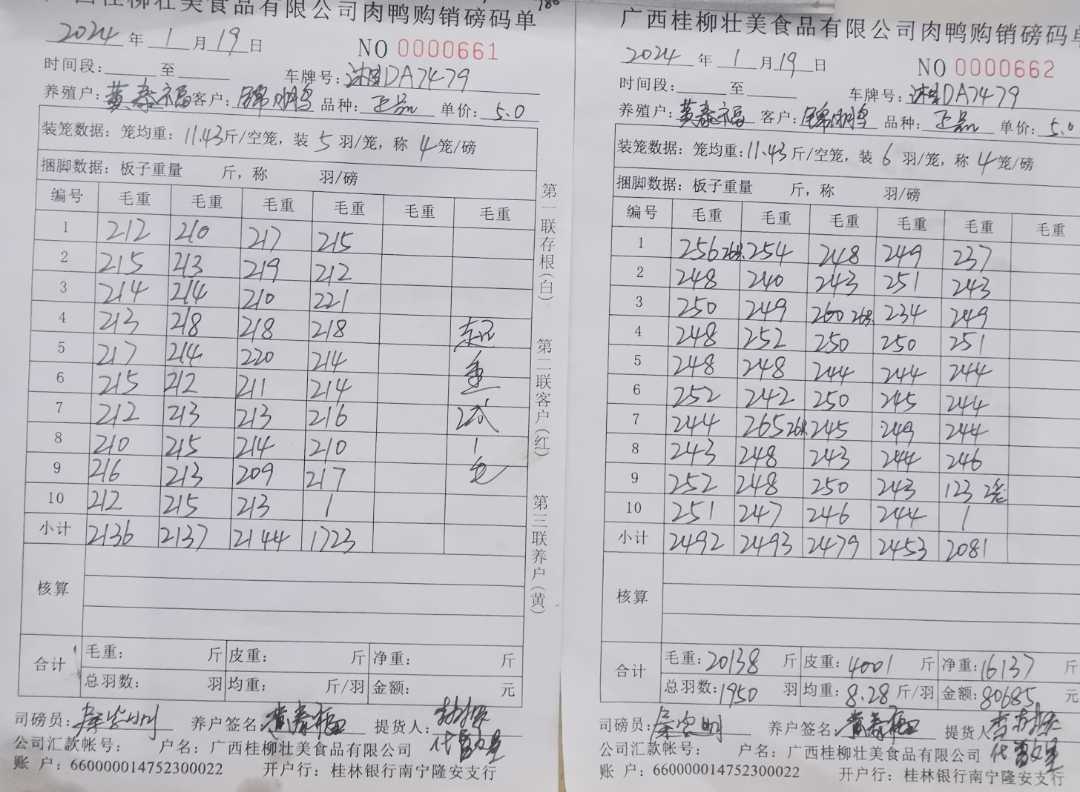 广西桂柳壮美食品有限公司肉鸭购销磅码单
2024年1月19日 NO 0000661
时间段:____至____ 车牌号:湘DA7479
养殖户:黄泰福 客户: 品种:正品 单价:5.0
装笼数据:笼均重:11.43斤/空笼,装5羽/笼,称4笼/磅
捆脚数据:板子重量 斤,称 羽/磅
编号 毛重 毛重 毛重 毛重 毛重 毛重
1 212 210 217 215
2 215 213 219 212
3 214 214 210 221
4 213 218 218 218
5 217 214 220 214
6 215 212 211 214
7 212 213 213 216
8 210 215 214 210
9 216 213 209 217
10 212 215 213 /
小计 2136 2137 2144 1723
核算
合计 毛重: 斤 皮重: 斤 净重: 斤
总羽数: 羽 均重: 斤/羽 金额: 元
司磅员: 养户签名:黄泰福 提货人:
公司汇款帐号: 户名:广西桂柳壮美食品有限公司
账 户:660000014752300022 开户行:桂林银行南宁隆安支行
第一联存根(白) 第二联客户(红) 第三联养户(黄)
广西桂柳壮美食品有限公司肉鸭购销磅码单
2024年1月19日 NO 0000662
时间段:____至____ 车牌号:湘DA7479
养殖户:黄泰福 客户: 品种:正品 单价:5.0
装笼数据:笼均重:11.43斤/空笼,装6羽/笼,称4笼/磅
捆脚数据:板子重量 斤,称 羽/磅
编号 毛重 毛重 毛重 毛重 毛重 毛重
1 256 254 248 249 237
2 248 240 243 251 243
3 250 249 260 234 249
4 248 252 250 250 251
5 248 248 244 244 244
6 252 242 250 245 244
7 244 265 245 249 244
8 243 248 243 244 246
9 252 248 250 243 123 2笼
10 251 247 246 244 /
小计 2492 2493 2479 2453 2081
核算
合计 毛重:20138斤 皮重:4001斤 净重:16137斤
总羽数:1950羽 均重:8.28斤/羽 金额:80685元
司磅员: 养户签名:黄泰福 提货人:
公司汇款帐号: 户名:广西桂柳壮美食品有限公司
账 户:660000014752300022 开户行:桂林银行南宁隆安支行